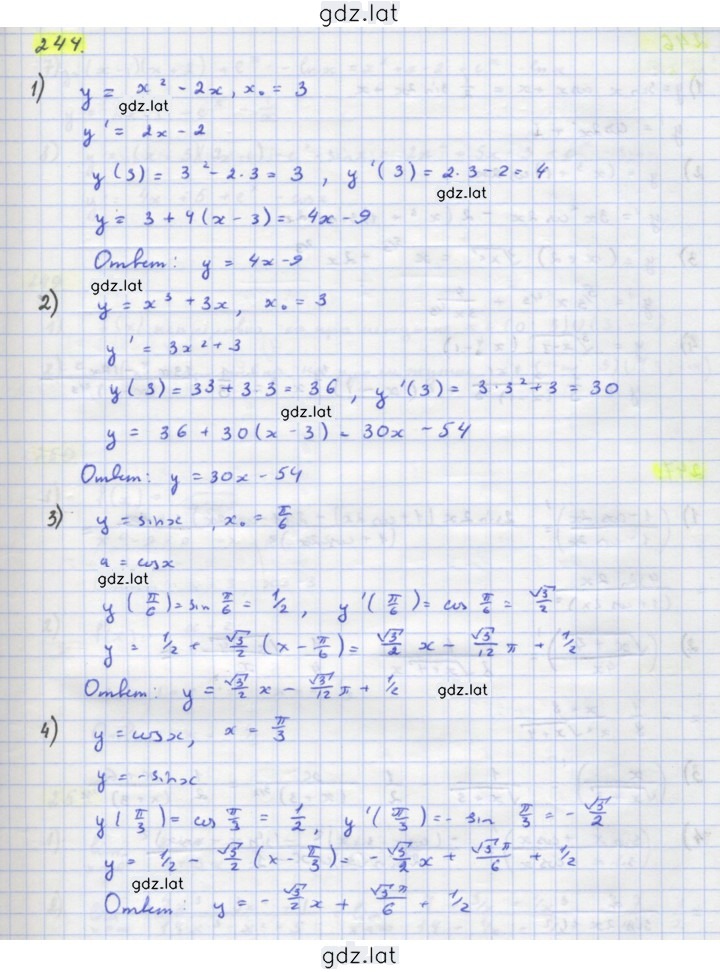 gdz.lat
244.
1) y = x² - 2x, x₀ = 3
gdz.lat
y' = 2x - 2
y(3) = 3² - 2·3 = 3, y'(3) = 2·3 - 2 = 4
gdz.lat
y = 3 + 4(x - 3) = 4x - 9
Ответ: y = 4x - 9
gdz.lat
2) y = x³ + 3x, x₀ = 3
y' = 3x² + 3
y(3) = 3³ + 3·3 = 36, y'(3) = 3·3² + 3 = 30
gdz.lat
y = 36 + 30(x - 3) = 30x - 54
Ответ: y = 30x - 54
3) y = sinx, x₀ = π/6
= cosx
gdz.lat
y(π/6) = sin π/6 = 1/2, y'(π/6) = cos π/6 = √3/2
y = 1/2 + √3/2 (x - π/6) = √3/2 x - √3/12 π + 1/2
Ответ: y = √3/2 x - √3/12 π + 1/2
gdz.lat
4) y = cosx, x = π/3
y = -sinx
y(π/3) = cos π/3 = 1/2, y'(π/3) = - sin π/3 = - √3/2
y = 1/2 - √3/2 (x - π/3) = - √3/2 x + √3π/6 + 1/2
gdz.lat
Ответ: y = - √3/2 x + √3π/6 + 1/2
gdz.lat